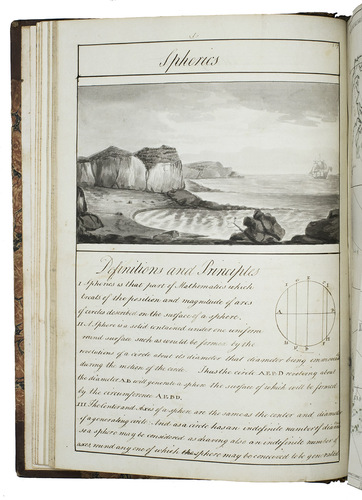 Spherics
Definitions and Principles
I. Spherics is that part of Mathematics which
treats of the position and magnitude of arcs
of circles described on the surface of a sphere.
II. A Sphere is a solid contained under one uniform
round surface such as would be formed by the
revolutions of a circle about its diameter that diameter being immovable
during the motion of the circle. Thus the circle AEBD revolving about
the diameter AB will generate a sphere the surface of which will be formed
by the circumference AEBD.
III. The Center and Axis of a sphere are the same as the center and diameter
of a generating circle. And as a circle has an indefinite number of diameters
so a sphere may be considered as having also an indefinite number of
axes, round any one of which the sphere may be conceived to be generated
A
B